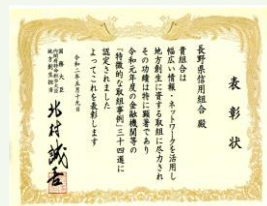 表彰状
長野県信用組合 殿
貴組合は
幅広い情報・ネットワークを活用し
地方創生に資する取組に尽力され
その功績は特に顕著であり
令和元年度の金融機関等の
「特徴的な取組事例」三十四選に
認定されました
よってこれを表彰します
令和二年五月十九日
国務大臣
内閣府特命担当大臣
地方創生担当
北村誠吾